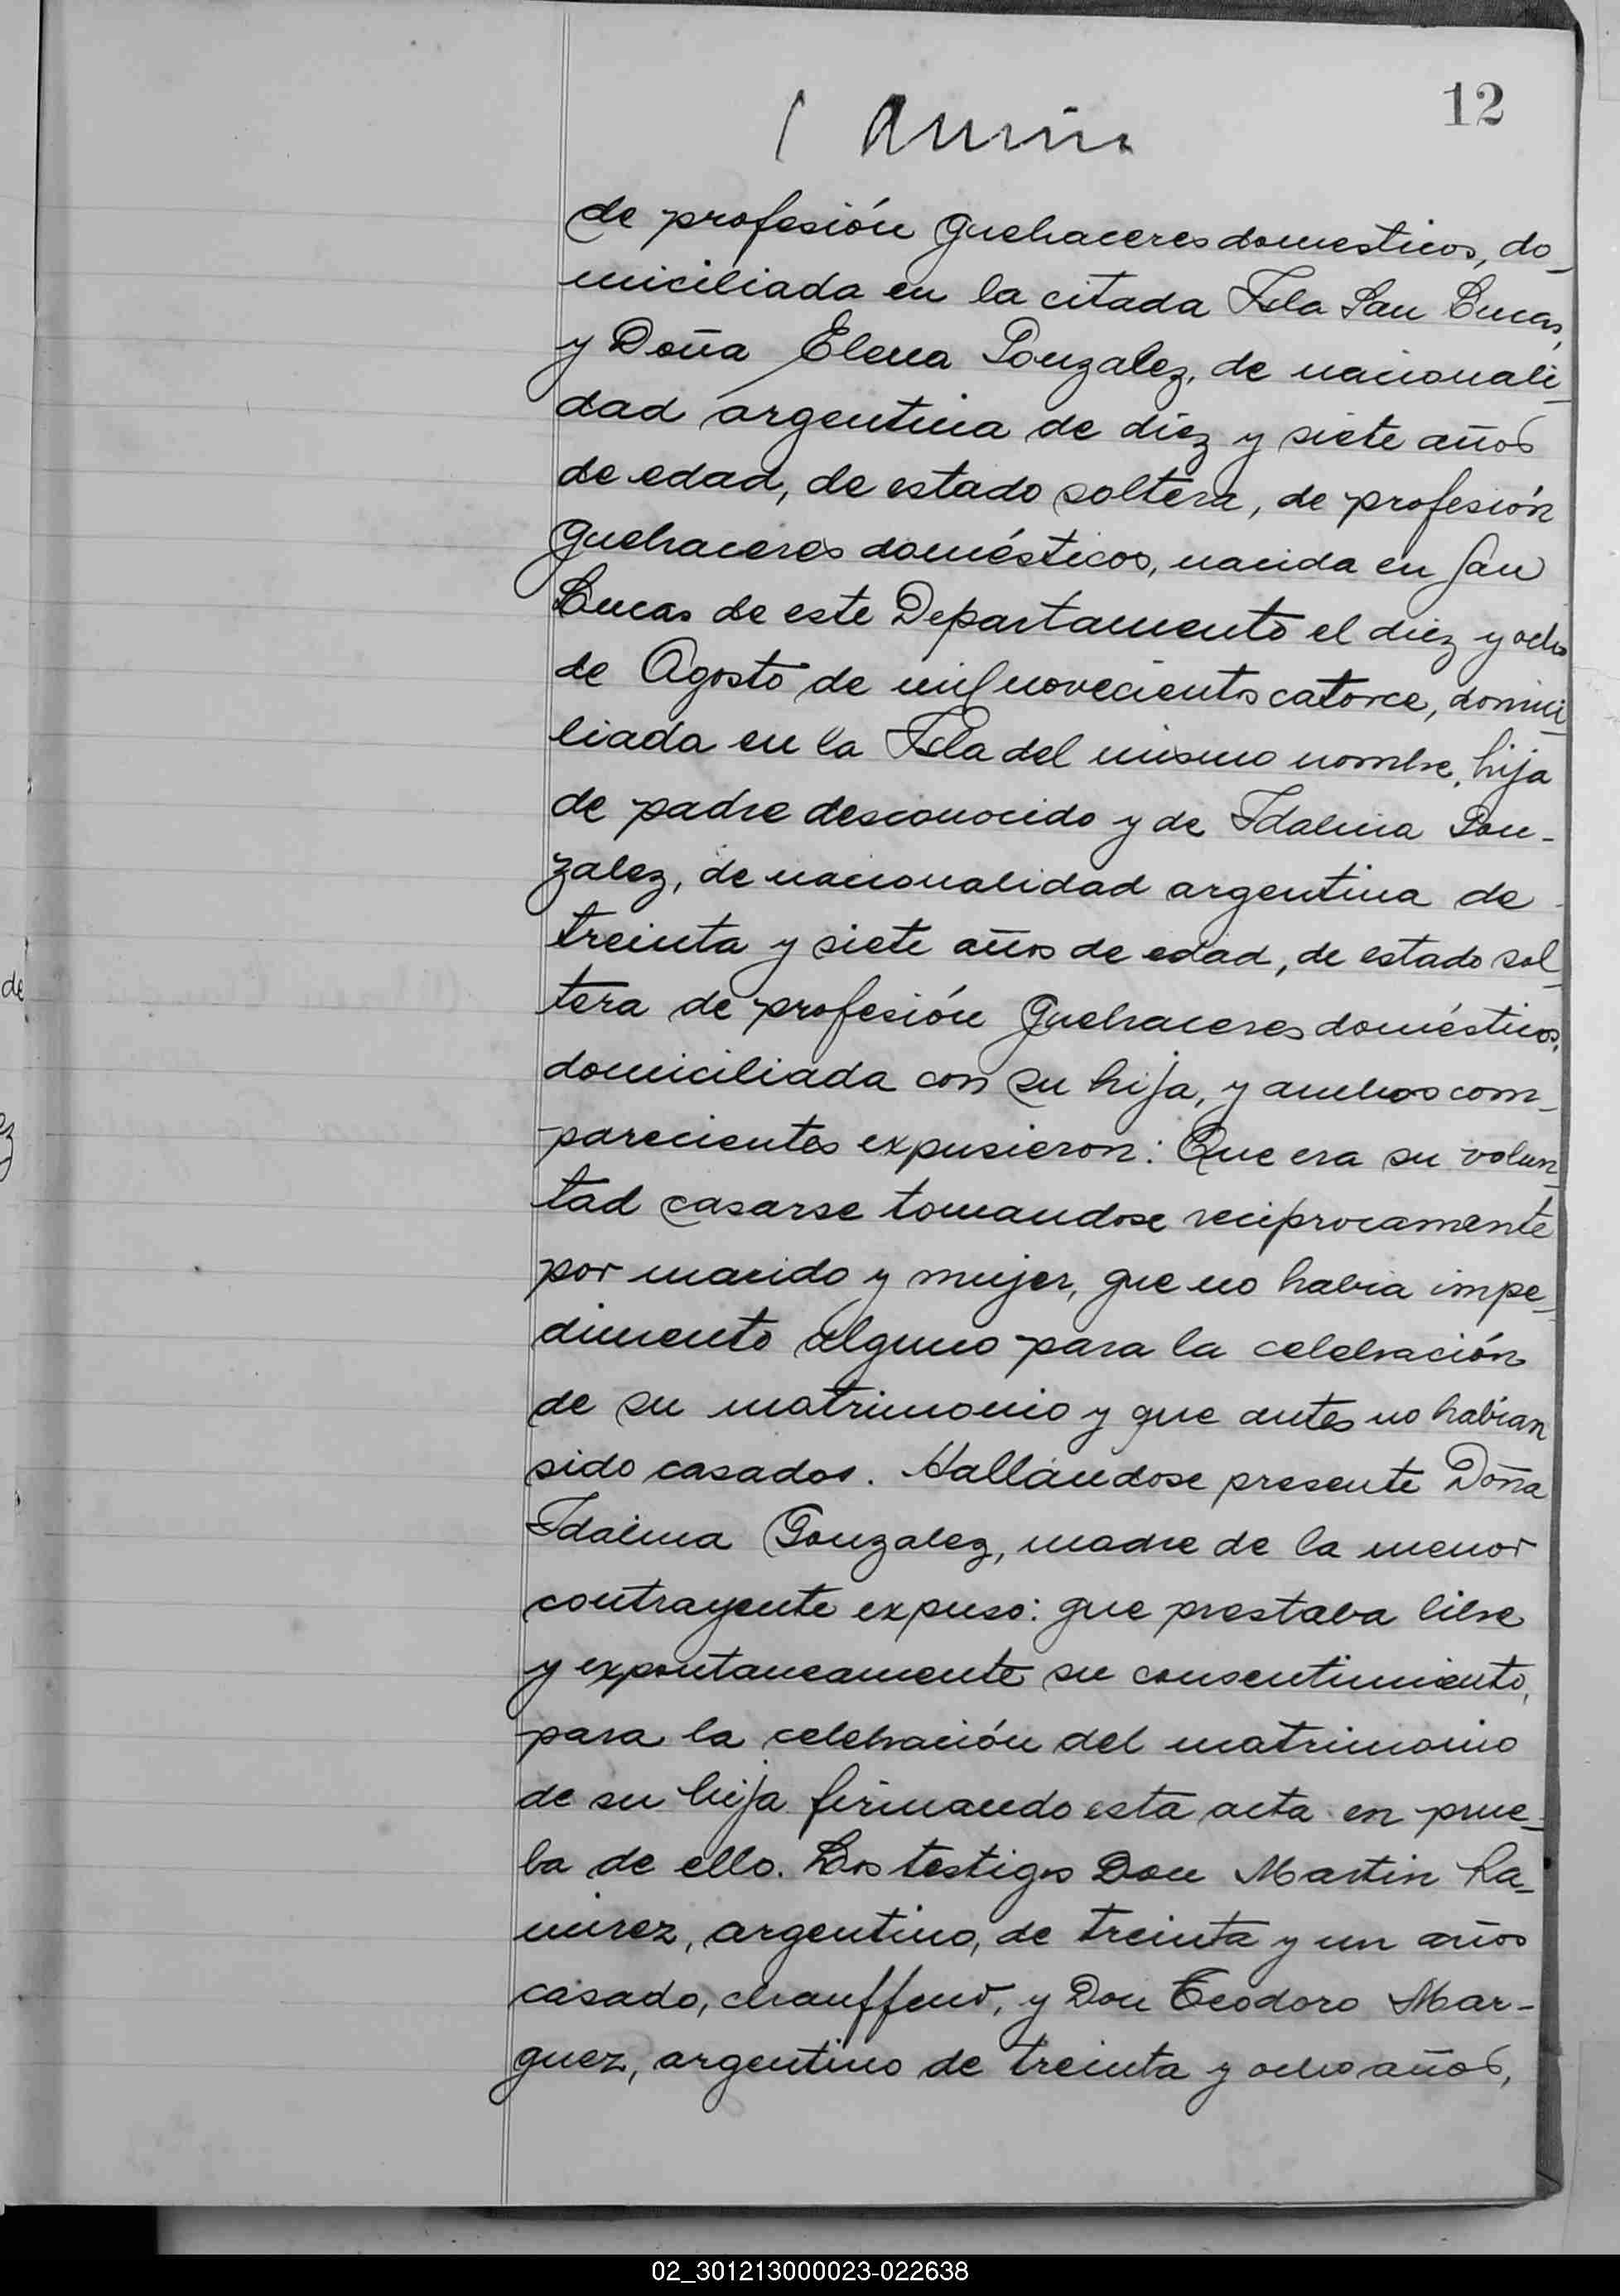 12
de profesión quehaceres domesticos, do-
miciliada en la citada Isla San Lucas,
y Doña Elena Gonzalez, de nacionali-
dad argentina de diez y siete años
de edad, de estado soltera, de profesión
quehaceres domésticos, nacida en San
Lucas de este Departamento el diez y ocho
de Agosto de mil novecientos catorce, domici-
liada en la Isla del mismo nombre, hija
de padre desconocido y de Idalina Gon-
zalez, de nacionalidad argentina de
treinta y siete años de edad, de estado sol-
tera de profesión quehaceres domésticos,
domiciliada con su hija, y ambos com-
parecientes expusieron: Que era su volun-
tad casarse tomandose reciprocamente
por marido y mujer, que no habia impe-
dimento alguno para la celebración
de su matrimonio y que antes no habian
sido casados. Hallándose presente Doña
Idalina Gonzalez, madre de la menor
contrayente expuso: que prestaba libre
y expontaneamente su consentimiento,
para la celebración del matrimonio
de su hija firmando esta acta en prue-
ba de ello. Los testigos Don Martin Ra-
mirez, argentino, de treinta y un años
casado, chauffeur, y Don Teodoro Mar-
quez, argentino de treinta y ocho años,
02_301213000023-022638